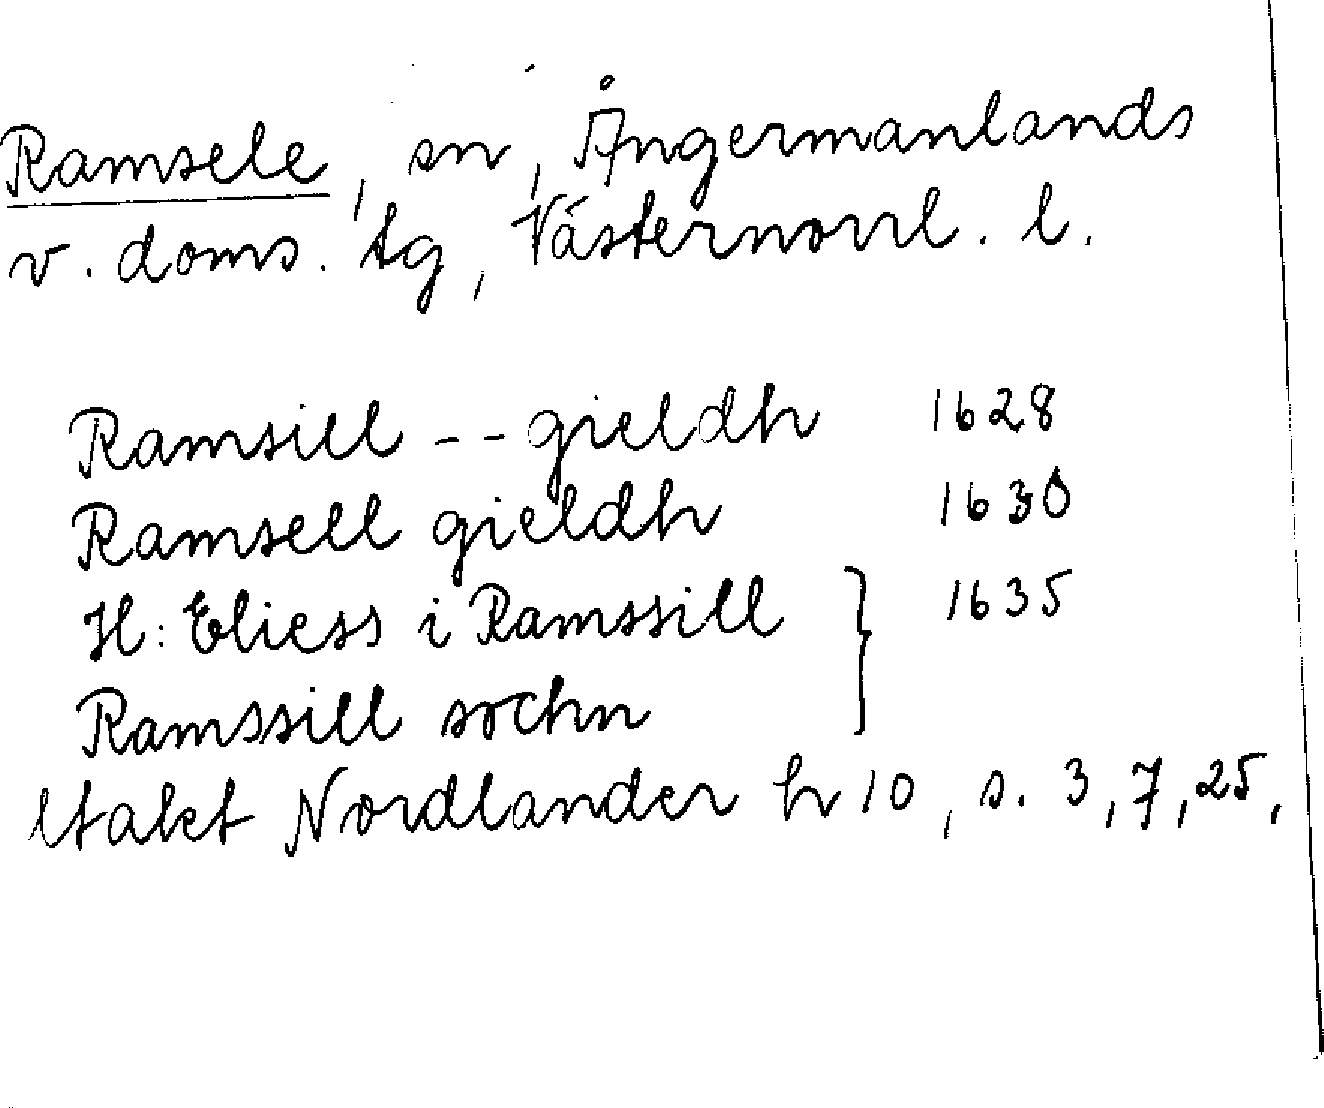 Ramsele, sn, Ångermanlands
v. doms. tg, Västernorrl. l.
Ramsill -- gieldh 1628
Ramsell gieldh 1630
H: Eliess i Ramssill } 1635
Ramssill sochn
Utakt Nordlander h 10, s. 3, 7, 25,